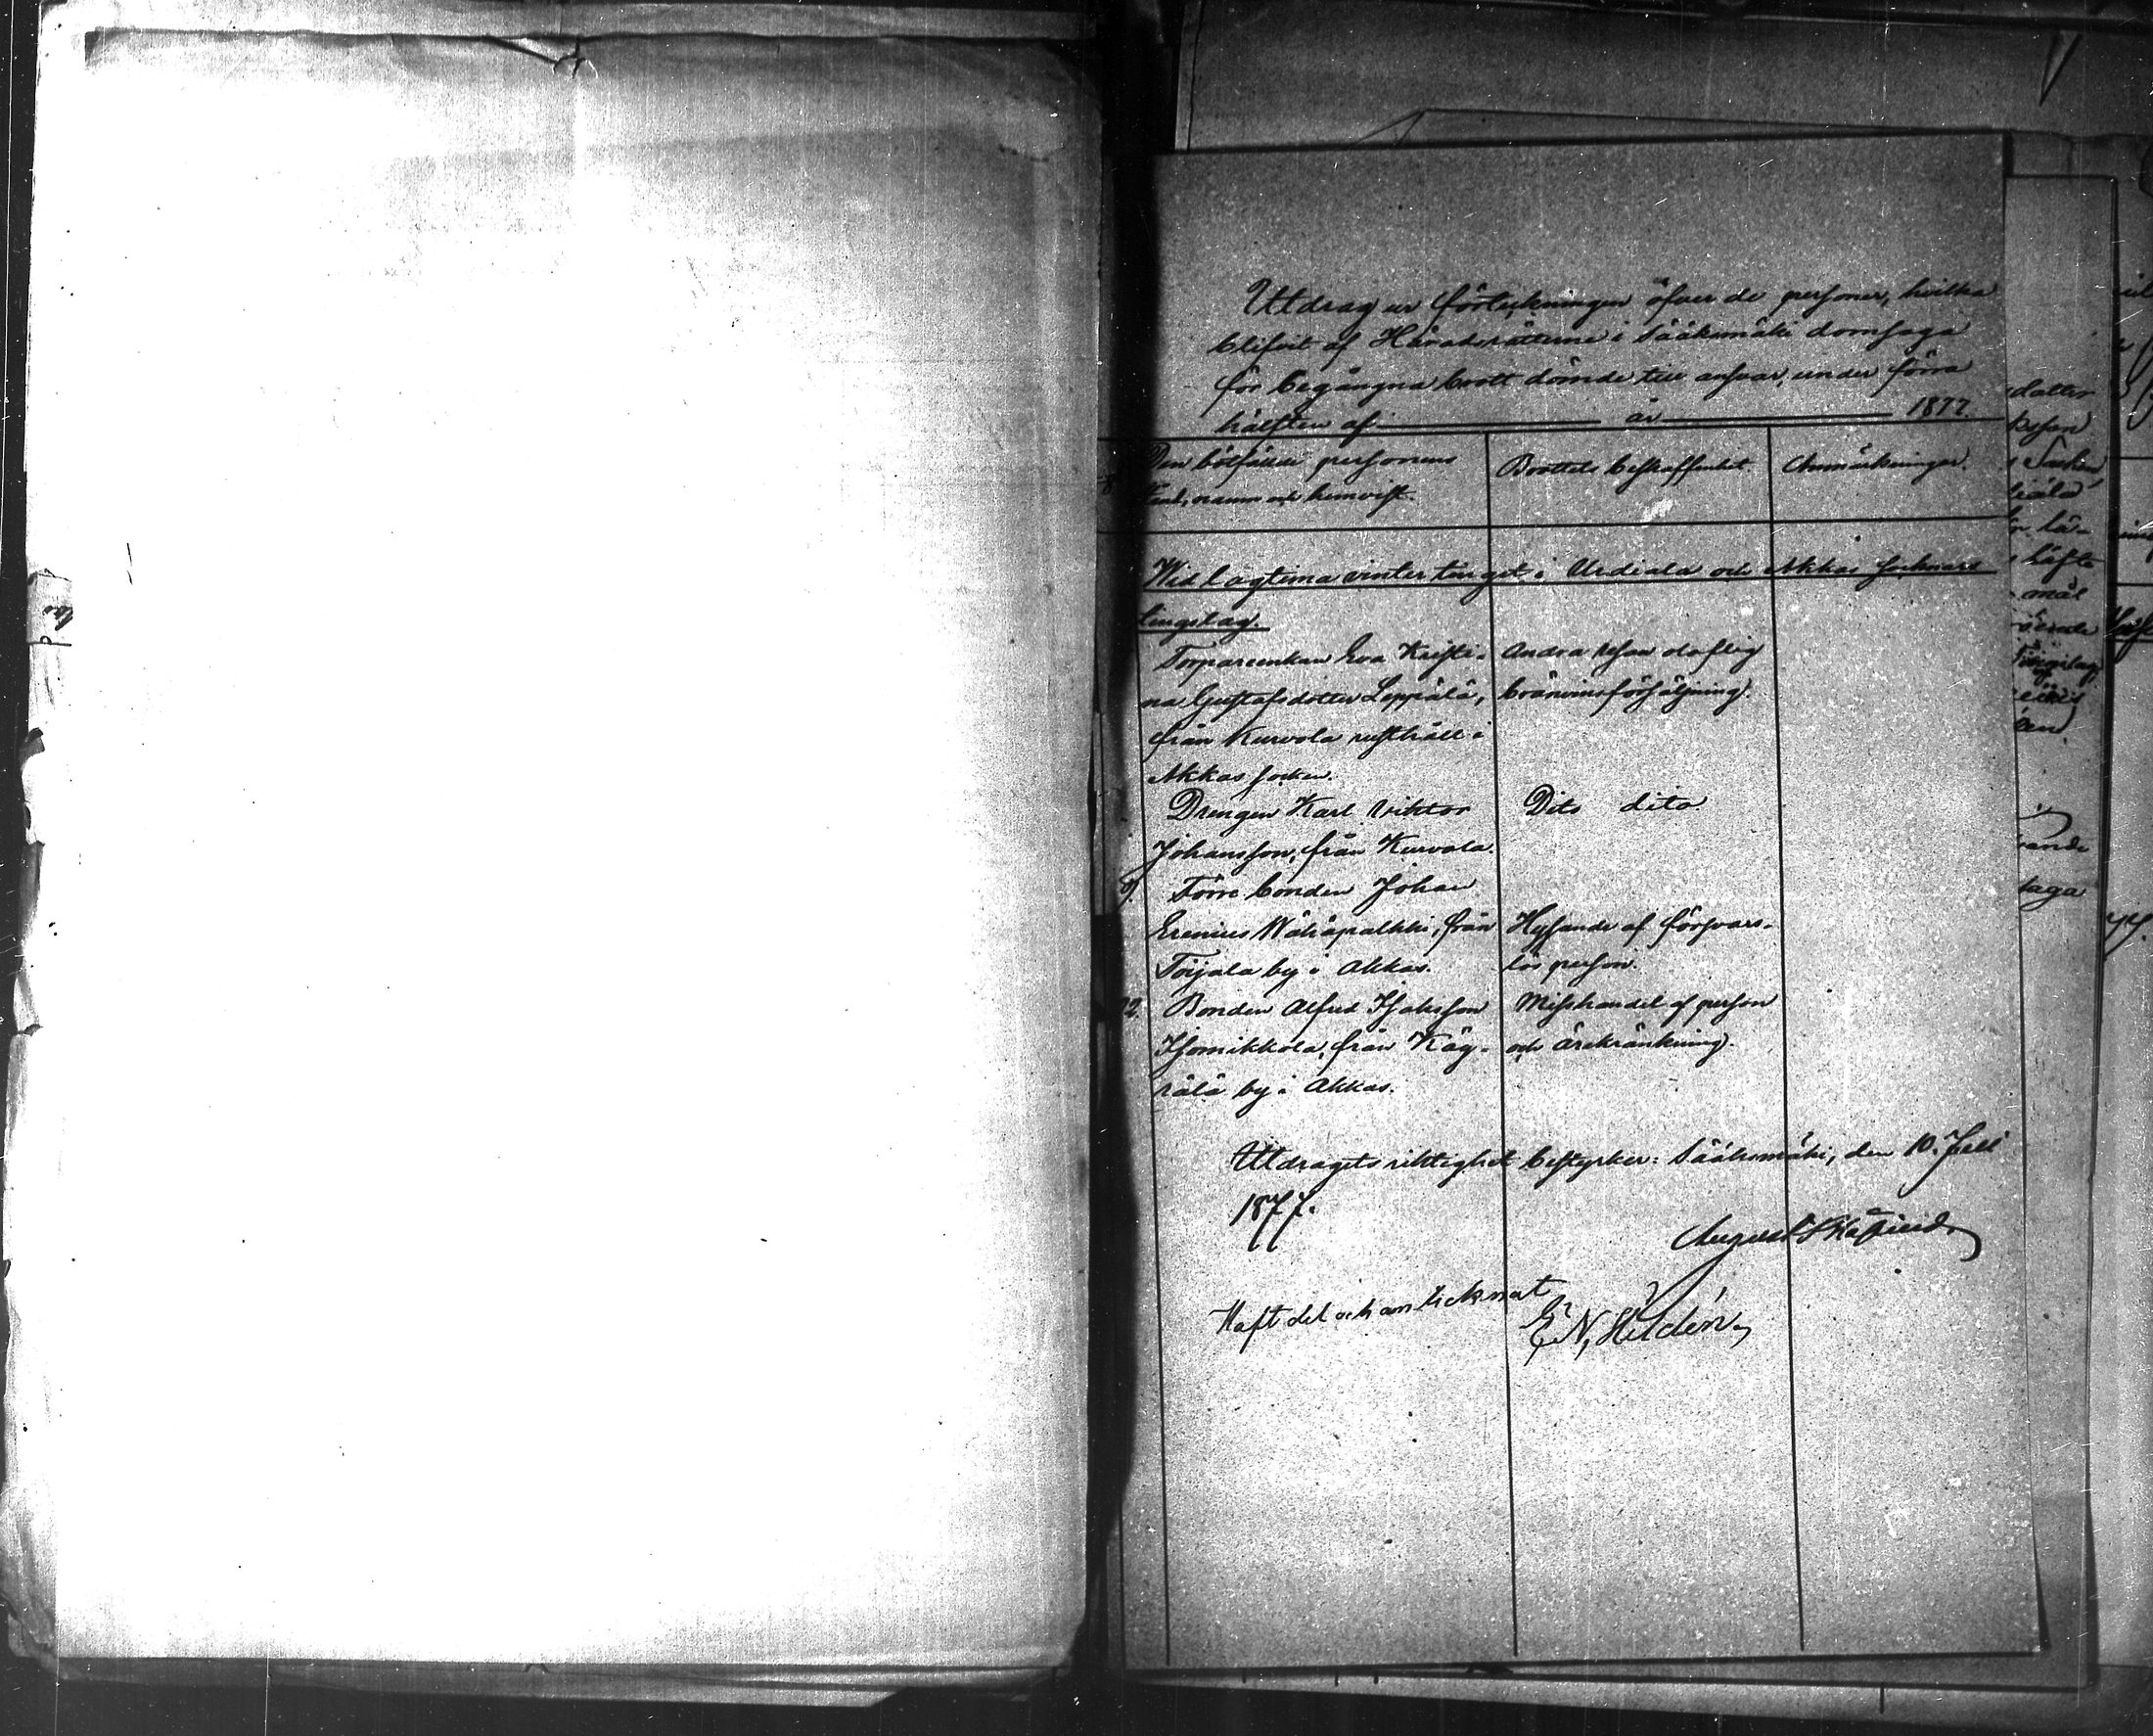 Utdrag ur förteckningen öfver de personer, hvilka
blifvit af Häradsrätterna i Sääksmäki domsaga
för begångna brott dömde till ansvar, under förra
hälften af år 1877.
Den bötfällde personens
namn och hemvist.
Brottets beskaffenhet.
Anmärkningar.
Wid lagtima vintertinget i Urdiala och Akkas socknars
tingslag.
Torpareenkan Eva Kristi-
na Gustafsdotter Leppälä,
från Kurvola rusthåll i
Akkas socken.
Andra resan olaflig
bränvinsförsäljning.
Drengen Karl Viktor
Johansson, från Kurvola.
Dito dito
9. Förre bonden Johan
Erenius Wähäpalkki, från
Toijala by i Akkas.
Hysande af försvars-
lös person.
12. Bonden Alfred Isaksson
Isomikkola, från Käg-
rälä by i Akkas.
Misshandel af person
och ärekränkning.
Utdragets riktighet bestyrker: Sääksmäki, den 10. Juli
1877.
August
Haft del och antecknat
E. N. Hildén
dotter
lä-
häfte
mål
Tingslag
vande
saga